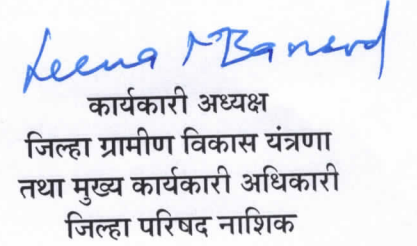 Leena M Bansod
कार्यकारी अध्यक्ष
जिल्हा ग्रामीण विकास यंत्रणा
तथा मुख्य कार्यकारी अधिकारी
जिल्हा परिषद नाशिक